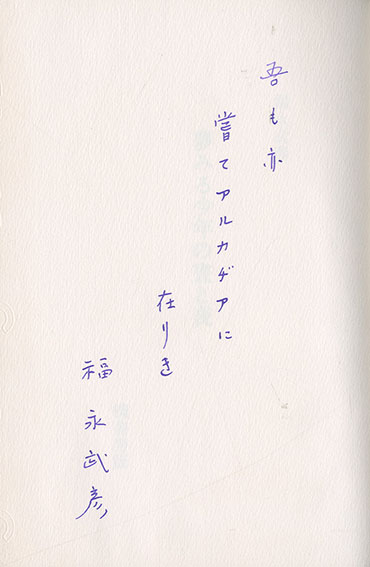 吾も亦
嘗てアルカヂアに
在りき
福永武彦